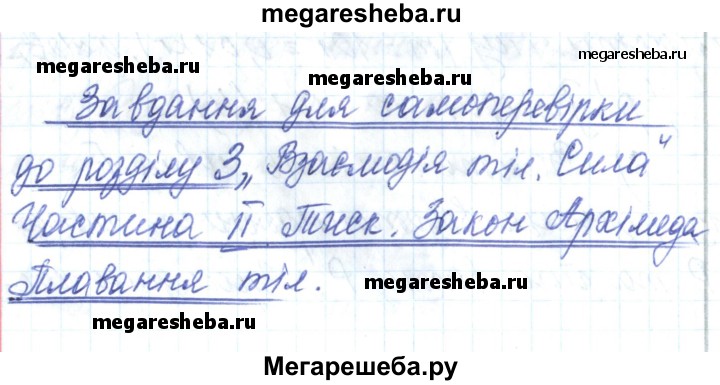 megaresheba.ru
megaresheba.ru
megaresheba.ru
megaresheba.ru
Завдання для самоперевірки
до розділу 3 „Взаємодія тіл. Сила"
Частина II Тиск. Закон Архімеда
Плавання тіл.
megaresheba.ru
megaresheba.ru
Мегарешеба.ру